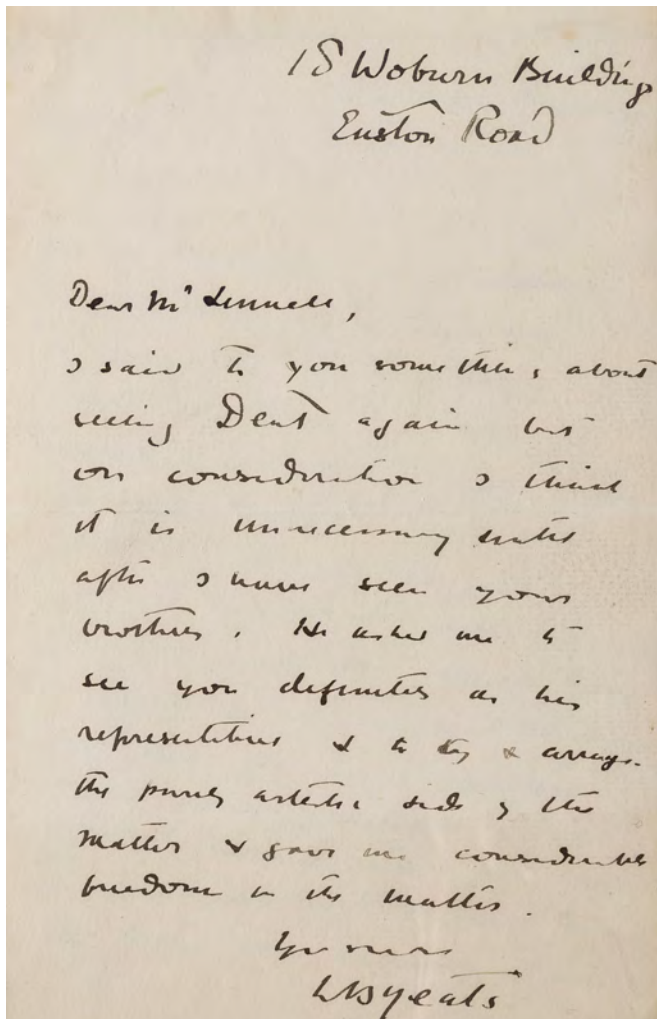 18 Woburn Buildings
Euston Road
Dear Mr Linnell,
I said to you something about
seeing Dent again but
on consideration I think
it is unnecessary until
after I have seen your
brothers. He asked me to
see you definitely as his
representative & to try & arrange
the purely artistic side of the
matter & gave me considerable
freedom in the matter.
Yrs
WB Yeats